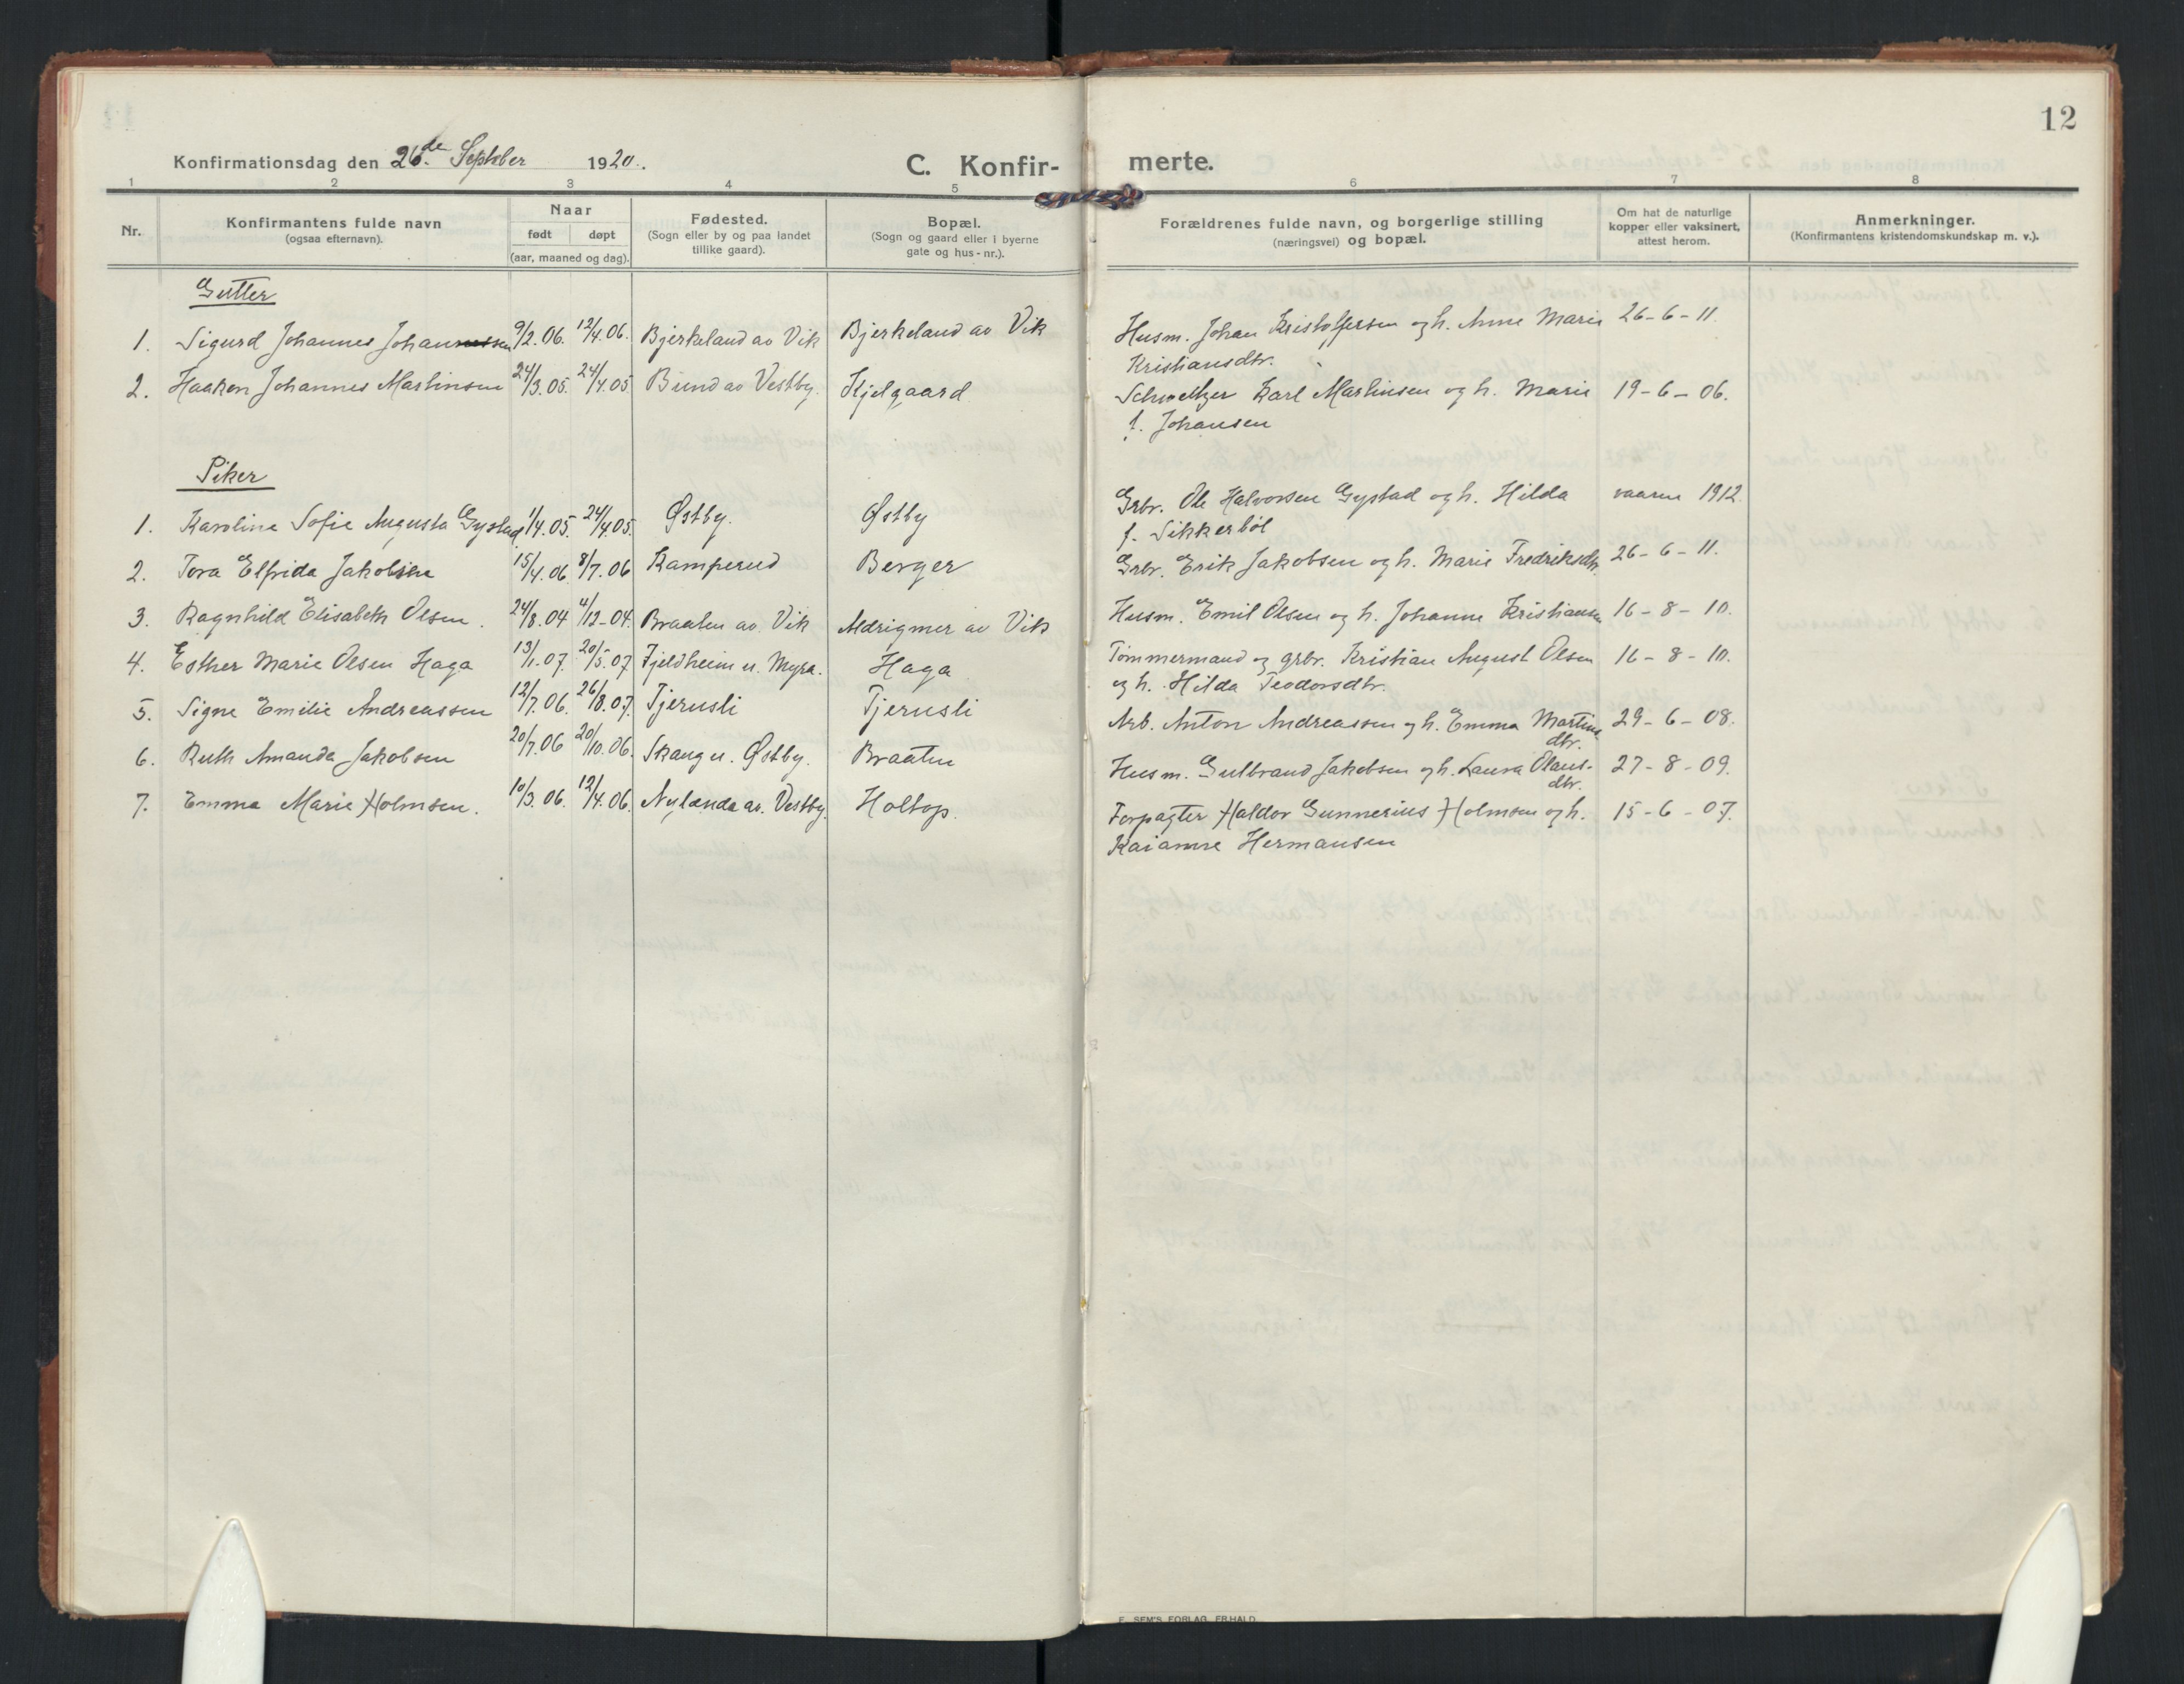 12
Konfirmationsdag den 26.de September 1920.
C. Konfir-
merte.
1 2 3 4 5 6 7 8
Nr.
Konfirmantens fulde navn
(ogsaa efternavn).
Naar
født døpt
(aar, maaned og dag).
Fødested.
(Sogn eller by og paa landet
tillike gaard).
Bopæl.
(Sogn og gaard eller i byerne
gate og hus-nr.).
Forældrenes fulde navn, og borgerlige stilling
(næringsvei) og bopæl.
Om hat de naturlige
kopper eller vaksinert,
attest herom.
Anmerkninger.
(Konfirmantens kristendomskundskap m. v.).
Gutter
1. Sigurd Johannes Johannessen 9/2.06. 12/4.06. Bjerkeland av Vik Bjerkeland av Vik Husm. Johan Kristoffersen og h. Anne Marie 26-6-11.
Kristiansdtr.
2. Haakon Johannes Martinsen 24/3.05. 24/4.05 Bund av Vestby. Kjelgaard Schweitzer Karl Martinsen og h. Marie 19-6-06.
f. Johansen
Piker
1. Karoline Sofie Augusta Gystad 1/4.05. 24/4.05. Østby. Østby Grbr. Ole Halvorsen Gystad og h. Hilda vaaren 1912.
f. Sikkerbøl
2. Tora Elfrida Jakobsen 15/4.06. 8/7.06 Kamperud Berger Grbr. Erik Jakobsen og h. Marie Fredriksdtr. 26-6-11.
3. Ragnhild Elisabeth Olsen. 24/8.04 4/12-04. Braaten av Vik Aldrigmer av Vik Husm. Emil Olsen og h. Johanne Kristiansen 16-8-10.
4. Esther Marie Olsen Haga 13/1.07. 20/5.07. Fjeldheim u. Myra. Haga Tømmermand og grbr. Kristian August Olsen 16-8-10.
og h. Hilda Teodorsdtr.
5. Signe Emilie Andreassen 12/7.06. 26/8.07. Tjernsli Tjernsli Arb. Anton Andreassen og h. Emma Martins 29-6-08.
dtr.
6. Ruth Amanda Jakobsen 20/7.06 20/10.06. Skaug u. Østby. Braaten Husm. Gulbrand Jakobsen og h. Laura Olaus- 27-8-09.
dtr.
7. Emma Marie Holmsen. 10/3.06. 12/4.06. Nylænde av. Vestby. Holtop. Forpagter Haldor Gunnerius Holmsen og h. 15-6-07.
Kaianne Hermansen
E. SEM'S FORLAG, FR.HALD.